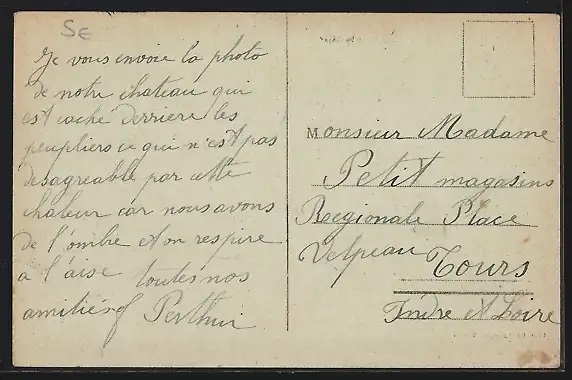 5E
Je vous envoie la photo
de notre chateau qui
est caché derriere les
peupliers ce qui n'est pas
desagreable par cette
chaleur car nous avons
de l'ombre et on respire
a l'aise toutes nos
amitiés Perthui
Monsieur Madame
Petit magasins
Regionale Place
Velpeau Tours
Indre et Loire